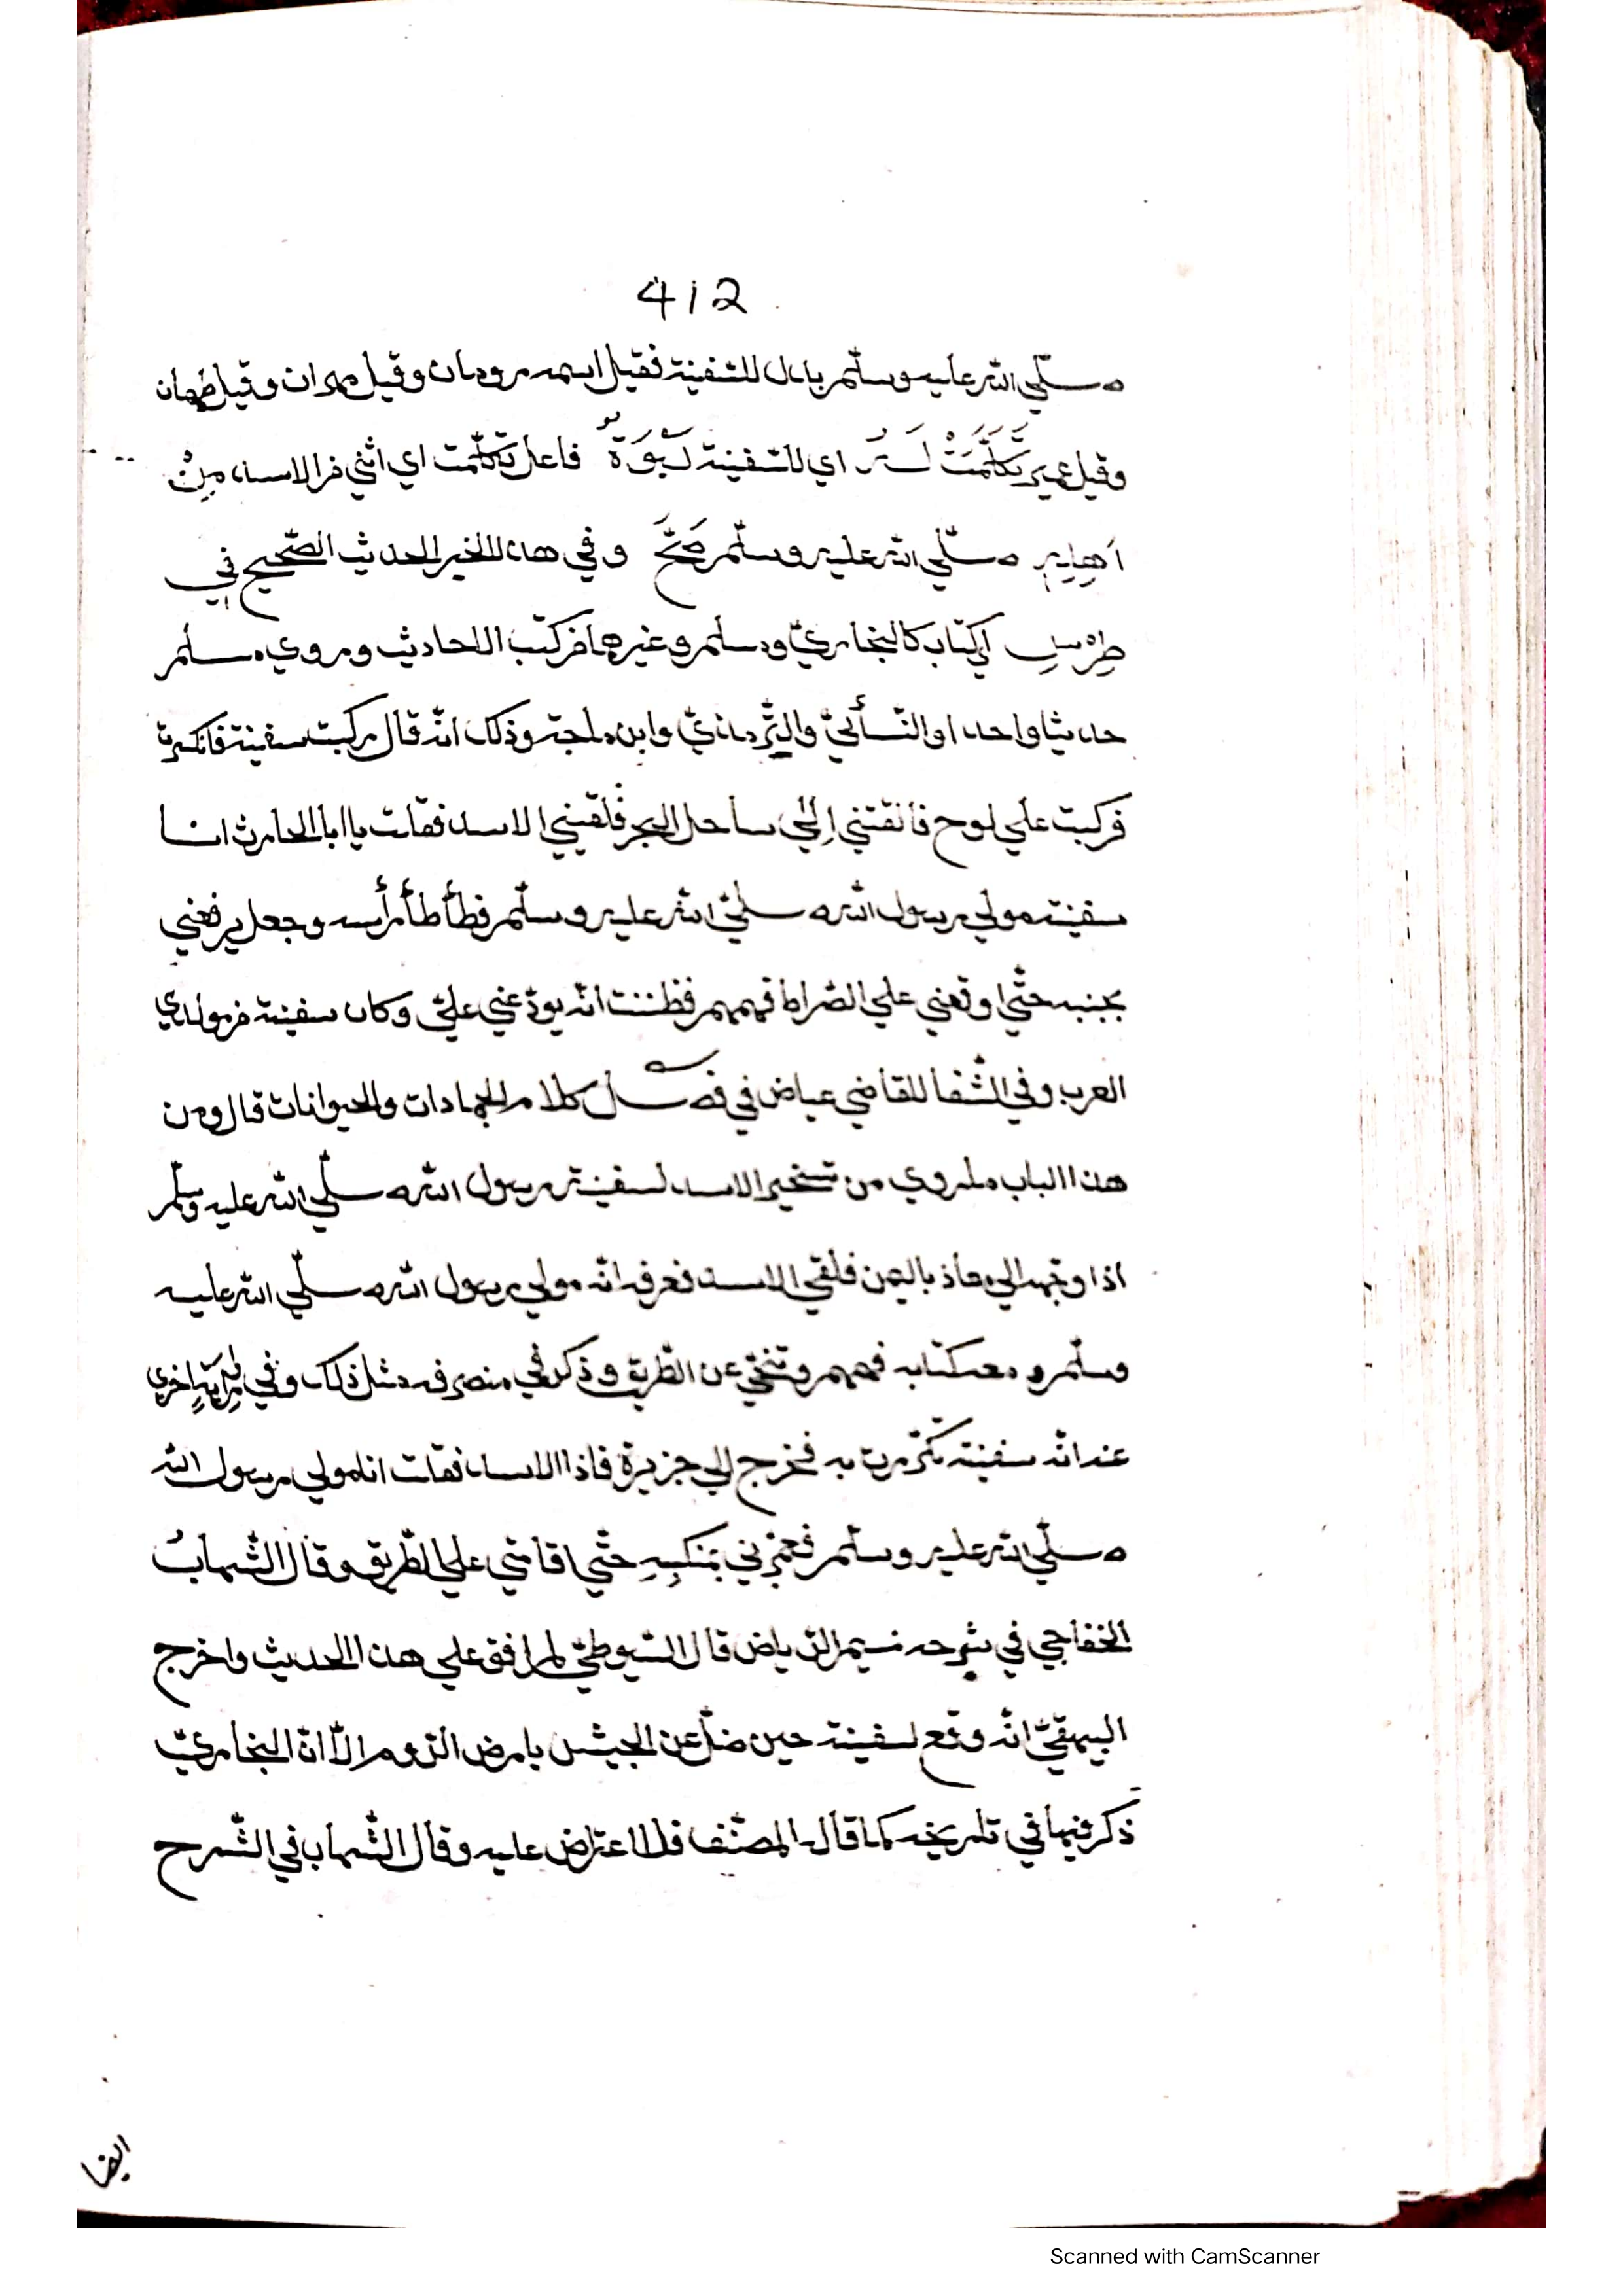 412
صلّي الله عليه وسلّم بابدال للسّفينة فقيل اسمه رومان وقيل مهران وقيل طهمان
وقيل عمير تَكَلَّمَتْ لَهُ اي للسّفينة لَبْوَةٌ فاعل تكلّمت اي انثي من الاسد مِنْ
اَجْلِهِ صلّي الله عليه وسلّم صَحَّ وفي هذا الخبر الحديث الصّحيح في
طِرْسِ اي كتاب كالبخاريّ ومسلم وغيرهما من كتب الاحاديث وروي مسلم
حديثا واحدا والنّسأئيّ والتّرمذيّ وابن ماجة وذلك انّه قال ركبت سفينة فانكسرت
فركبت علي لوح فالقتني اِلٰي ساحل البحر فلقيني الاسد فقلت يا ابا الحارث انا
سفينة مولي رسول الله صلّي الله عليه وسلّم فطأطأ رأسه وجعل يدفعني
بجنبه حتّي اوقعني علي الصّراط فهمهم فظننت انّه يودّعني علي وكان سفينة من مولدي
العرب وفي الشّفا للقاضي عياض في فصل كلام الجمادات والحيوانات قال ومن
هذا الباب ما روي من تسخير الاسد لسفينة رسول الله صلّي الله عليه وسلّم
اذا وجّهه الي معاذ باليمن فلقي الاسد فعرفه انّه مولي رسول الله صلّي الله عليه
وسلّم ومعه كتابه فهمهم وتنحّي عن الطّريق وذكر في منصرفه مثل ذلك وفي رواية اخري
عنه انّه سفينة تكسّرت به فخرج الي جزيرة فاذا الاسد فقلت انا مولي رسول الله
صلّي الله عليه وسلّم فغمزني بمنكبِهِ حتّي اقامني علي الطّريق وقال الشّهابُ
الخفاجي في شرحه نسيم الرّياض قال السّيوطيّ لم اقف علي هذا الحديث واخرج
البيهقيّ انّه وقع لسفينة حين ضلّ عن الجيش بارض الرّوم الّا انّ البخاريّ
ذكر فيها في تاريخه كما قال المصنّف فلا اعتراض عليه وقال الشّهاب في الشّرح
ايضا
Scanned with CamScanner